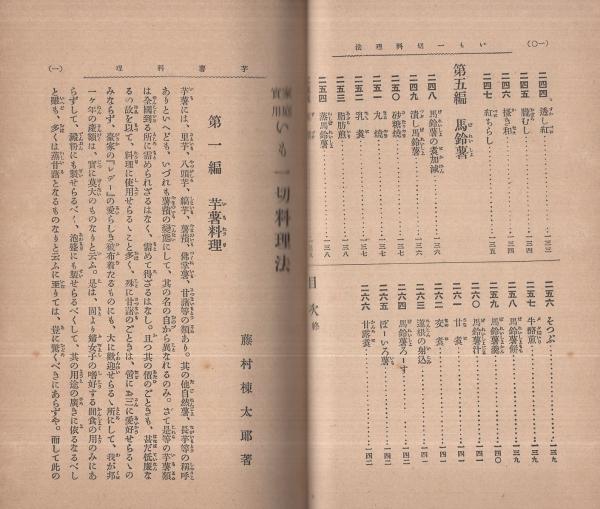 (一〇)
いも一切料理法
二四四 透し紅……一三三
二四五 朧むし……一三四
二四六 掻き和……一三四
二四七 紅ちらし……一三五
第五編 馬鈴薯
二四八 馬鈴薯の煮加減……一三六
二四九 潰し馬鈴薯……一三六
二五〇 砂糖燒……一三七
二五一 丸燒……一三七
二五二 乳煮……一三七
二五三 脂肪煎……一三八
二五四 蒸馬鈴薯……一三八
二五六 そつぷ……一三九
二五七 牛酪煎……一三九
二五八 馬鈴薯餅……一三九
二五九 馬鈴薯羹……一四〇
二六〇 馬鈴薯汁……一四一
二六一 甘煮……一四一
二六二 衣煮……一四一
二六三 道祺の射込……一四一
二六四 馬鈴薯ろーす……一四二
二六五 ぼーいろ薯……一四二
二六六 甘露煮……一四二
目次 終
芋薯料理
(一)
家庭實用 いも一切料理法
藤村棟太郎著
第一編 芋薯料理
芋薯には、里芋、八頭芋、薯蕷、佛掌薯、甘藷等の類あり。其の他自然薯、長芋等の稱呼
ありといへども、いづれも薯蕷の變態にして、其の名の自から異なれるのみ。さて是等の芋薯類
は全國到る所に需められざるはなく、需めて得ざるはなし。且つ其の價のごときも、甚だ低廉な
るの故を以て、料理に使用せらるゝこと多く、殊に甘藷のごときは、啻にお三に愛好せらるゝの
みならず、豪家の『レデー』の愛らしき被布着たるものにも、大に歡迎せらるゝ所にして、我が邦
一ヶ年の産額は、實に莫大のものなりと云ふ。是は、固より婦女子の嗜好する間食の用のみにあ
らずして、澱粉にも製せらるべく、泡盛にも製せらるべくして、其の用途の廣きに依るなるべし
と雖も、多くは蒸甘藷となるものなりと云ふに至りては、豈に驚くべきにあらずや。而して此の